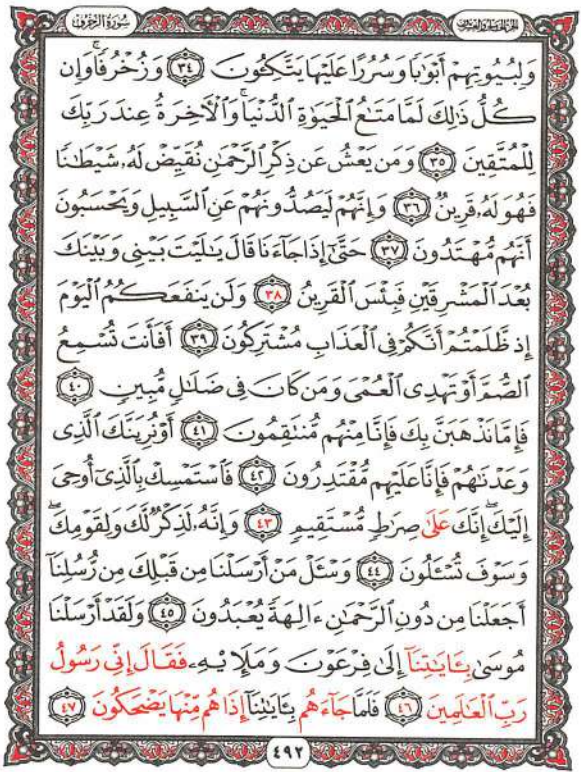 الجزء الخامس والعشرون
سورة الزخرف
وَلِبُيُوتِهِمْ أَبْوَٰبًا وَسُرُرًا عَلَيْهَا يَتَّكِـُٔونَ ٣٤ وَزُخْرُفًا ۚ وَإِن
كُلُّ ذَٰلِكَ لَمَّا مَتَٰعُ ٱلْحَيَوٰةِ ٱلدُّنْيَا ۚ وَٱلْءَاخِرَةُ عِندَ رَبِّكَ
لِلْمُتَّقِينَ ٣٥ وَمَن يَعْشُ عَن ذِكْرِ ٱلرَّحْمَٰنِ نُقَيِّضْ لَهُۥ شَيْطَٰنًا
فَهُوَ لَهُۥ قَرِينٌ ٣٦ وَإِنَّهُمْ لَيَصُدُّونَهُمْ عَنِ ٱلسَّبِيلِ وَيَحْسَبُونَ
أَنَّهُم مُّهْتَدُونَ ٣٧ حَتَّىٰٓ إِذَا جَآءَنَا قَالَ يَٰلَيْتَ بَيْنِى وَبَيْنَكَ
بُعْدَ ٱلْمَشْرِقَيْنِ فَبِئْسَ ٱلْقَرِينُ ٣٨ وَلَن يَنفَعَكُمُ ٱلْيَوْمَ
إِذ ظَّلَمْتُمْ أَنَّكُمْ فِى ٱلْعَذَابِ مُشْتَرِكُونَ ٣٩ أَفَأَنتَ تُسْمِعُ
ٱلصُّمَّ أَوْ تَهْدِى ٱلْعُمْىَ وَمَن كَانَ فِى ضَلَٰلٍ مُّبِينٍ ٤٠
فَإِمَّا نَذْهَبَنَّ بِكَ فَإِنَّا مِنْهُم مُّنتَقِمُونَ ٤١ أَوْ نُرِيَنَّكَ ٱلَّذِى
وَعَدْنَٰهُمْ فَإِنَّا عَلَيْهِم مُّقْتَدِرُونَ ٤٢ فَٱسْتَمْسِكْ بِٱلَّذِىٓ أُوحِىَ
إِلَيْكَ ۖ إِنَّكَ عَلَىٰ صِرَٰطٍ مُّسْتَقِيمٍ ٤٣ وَإِنَّهُۥ لَذِكْرٌ لَّكَ وَلِقَوْمِكَ ۖ
وَسَوْفَ تُسْـَٔلُونَ ٤٤ وَسْـَٔلْ مَنْ أَرْسَلْنَا مِن قَبْلِكَ مِن رُّسُلِنَآ
أَجَعَلْنَا مِن دُونِ ٱلرَّحْمَٰنِ ءَالِهَةً يُعْبَدُونَ ٤٥ وَلَقَدْ أَرْسَلْنَا
مُوسَىٰ بِـَٔايَٰتِنَآ إِلَىٰ فِرْعَوْنَ وَمَلَإِي۟هِۦ فَقَالَ إِنِّى رَسُولُ
رَبِّ ٱلْعَٰلَمِينَ ٤٦ فَلَمَّا جَآءَهُم بِـَٔايَٰتِنَآ إِذَا هُم مِّنْهَا يَضْحَكُونَ ٤٧
٤٩٢